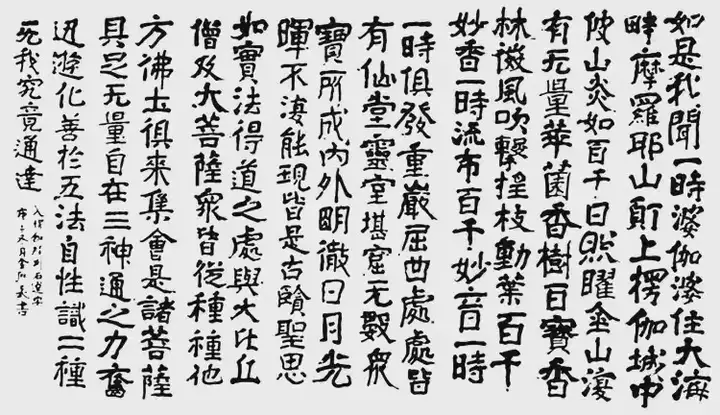 如是我聞一時婆伽婆住大海
畔摩羅耶山頂上楞伽城中
彼山炎如百千日照曜金山復
有无量華園香樹百寶香
林微風吹擊搖枝動葉百千
妙香一時流布百千妙音一時
一時俱發重巖屈曲處處皆
有仙堂靈室堪窟无數眾
寶所成內外明徹日月光
暉不復能現皆是古賢聖思
如實法得道之處與大比丘
僧及大菩薩眾皆從種種他
方佛土俱來集會是諸菩薩
具足无量自在三神通之力奮
迅遊化善於五法自性識二種
无我究竟通達